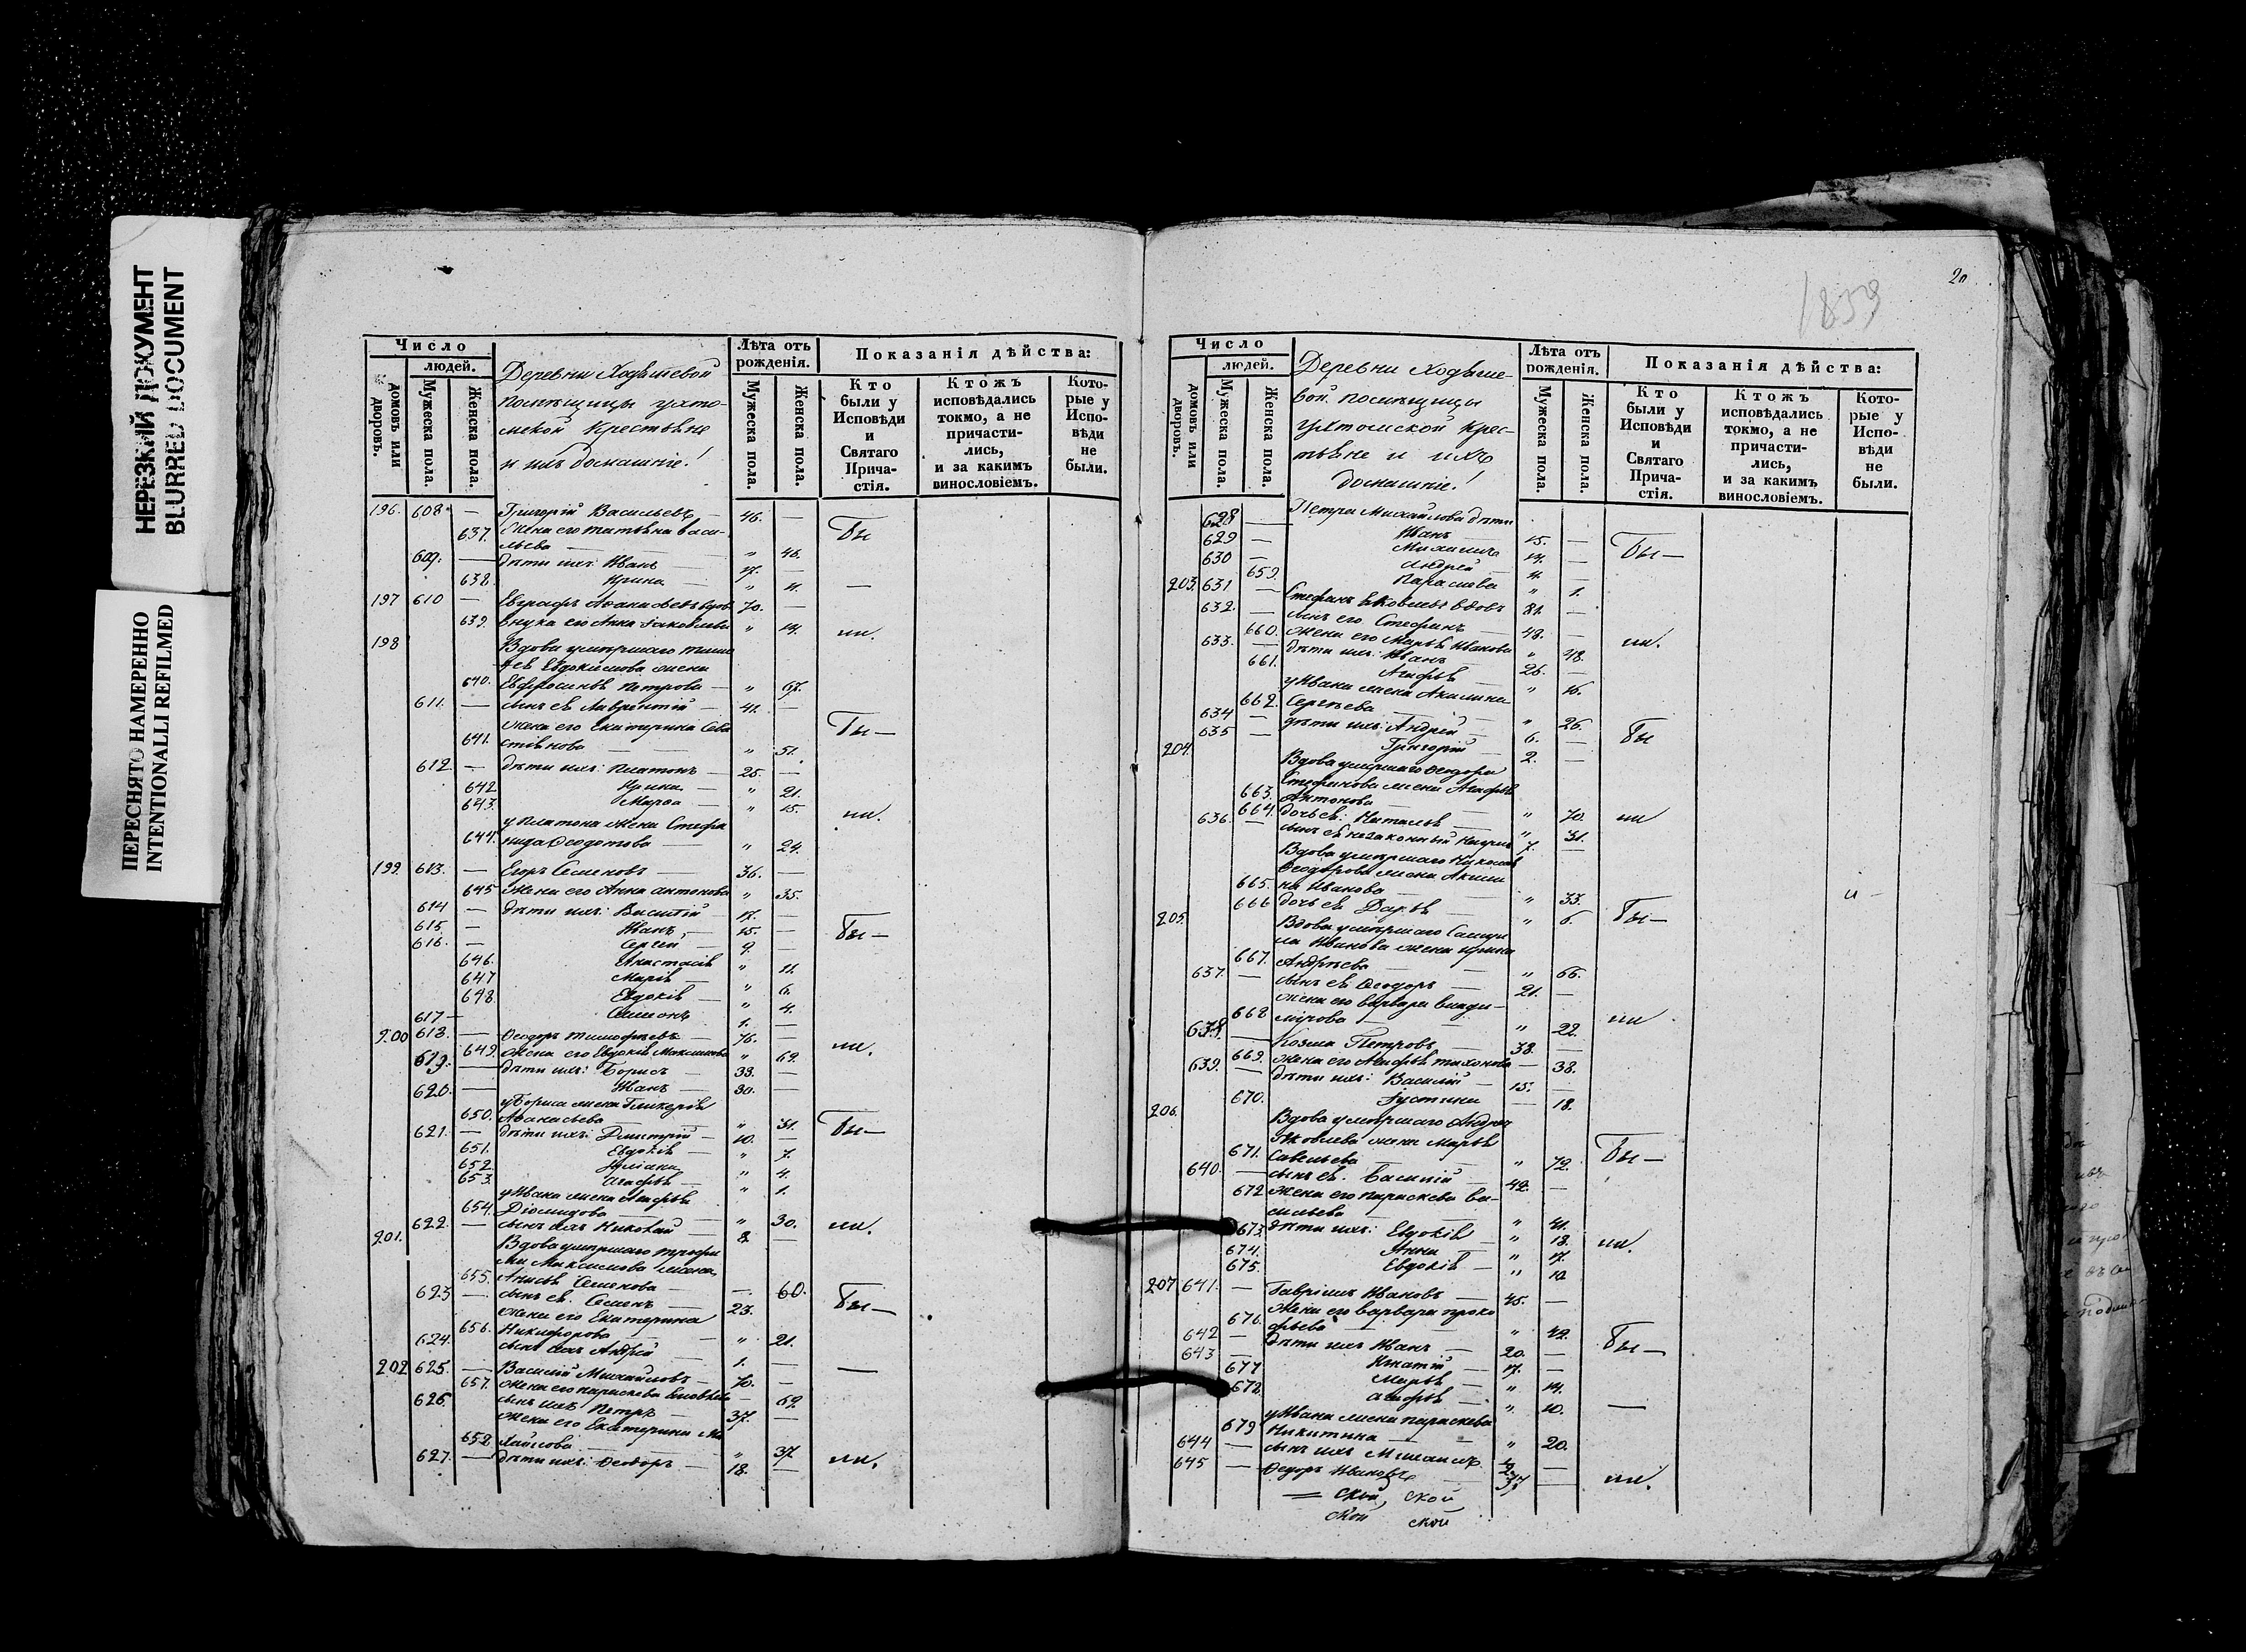 НЕРЕЗКИЙ ДОКУМЕНТ
BLURRED DOCUMENT
ПЕРЕСНЯТО НАМЕРЕННО
INTENTIONALLI REFILMED
Число
людей.
домовъ или дворовъ.
Мужеска пола.
Женска пола.
Деревни Ходяшевой
помѣщицы Ухто-
мской Крестьяне
и ихъ домашніе!
Лѣта отъ рожденія.
Мужеска пола.
Женска пола.
Показанія дѣйства:
Кто были у Исповѣди и Святаго Прича-стія.
Ктожъ исповѣдались токмо, а не причасти-лись, и за какимъ винословіемъ.
Кото-рые у Испо-вѣди не были.
196. 608. — Григорій Васильевъ — 46. —
637. Жена его Татьяна Васи-
льева — " 46.
Бы
609. — дѣти ихъ: Иванъ — 17. —
638. Ирина — " 11. —
197 610 — Евграфъ Аѳанасьевъ вдовъ 70. —
639. внука его Анна Іаковлева " 14. ли.
198 Вдова умершаго Тимо
фея Евдокимова жена
640. Евфросинія Петрова — " 67.
611. — сынъ ея Лаврентій — 41. —
жена его Екатерина Сева
Бы —
641. стіянова — " 51.
612. — дѣти ихъ: Платонъ — 25. —
642 Ирина — " 21.
643. Марѳа — " 15. ли.
у Платона жена Стефа
644. нида Ѳеодотова — " 24.
199. 613. — Егоръ Семеновъ — 36. —
645 жена его Анна Антонова " 35.
614 — дѣти ихъ: Василій — 17. —
615. — Иванъ, — 15. — Бы —
616. — Сергей — 9. —
646. Анастасія " 11.
647 Марія — " 6.
648. Евдокія — " 4.
617 — Симеонъ 1. —
200 618. — Ѳеодоръ Тимоѳеевъ — 76. —
649. жена его Евдокія Максимова " 69. ли.
619. — дѣти ихъ: Борисъ — 33. —
620. — Иванъ — 30. —
у Бориса жена Гликерія
650. Аѳанасьева — " 31. Бы —
621. — дѣти ихъ: Дмитрій — 10. —
651. Евдокія — " 7.
652. Іуліана " 4.
653. Агафья — " 1.
у Ивана жена Агафья
654. Діомидова — " 30. ли.
622. — сынъ ихъ Николай — 2 —
201. Вдова умершаго Трофи
ма Максимова жена
655. Анисья Семенова — 60.
623 — сынъ ея. Семенъ — 23. Бы —
жена его Екатерина
656. Никифорова — " 21.
624. сынъ ихъ Андрей — 1. —
202 625. — Василій Михайловъ — 70. —
657. жена его Параскева 69.
626. сынъ ихъ Петръ — 37. —
жена его Екатерина Ми
658 хайлова — " 37
627. — дѣти ихъ: Ѳеодоръ — 18. — ли.
20
1839
Число
людей.
домовъ или дворовъ.
Мужеска пола.
Женска пола.
Деревни Ходяше-
вой. помѣщицы
Ухтомской Крес-
тьяне и ихъ
домашніе!
Лѣта отъ рожденія.
Мужеска пола.
Женска пола.
Показанія дѣйства:
Кто были у Исповѣди и Святаго Прича-стія.
Ктожъ исповѣдались токмо, а не причасти-лись, и за какимъ винословіемъ.
Кото-рые у Испо-вѣди не были.
Петра Михайлова дѣти
628 — Иванъ 15. —
629 — Михаилъ 14. — Бы —
630 — Андрей — 4. —
659. Параскева " 1.
203. 631 — Стефанъ Яковлевъ вдовъ 81. —
632. — сынъ его Стефанъ — 48. —
660. жена его Марья Иванова " 48. ли.
633. — дѣти ихъ: Иванъ — 26. —
661. Агафья — " 16.
у Ивана жена Акилина
662. Сергеева — " 26.
634 — дѣти ихъ: Андрей — 6. — Бы
635 — Григорій — 2. —
204. Вдова умершаго Ѳеодора
Стефанова жена Агафья
663. Антонова — " 70. ли
664. дочь ея: Наталья — " 31.
636. — сынъ ея незаконный 7. —
Вдова умершаго Николая
Ѳеодорова жена Акили
665. на Иванова — " 33. и —
666 дочь ея Дарья — " 6. Бы —
205. Вдова умершаго Самуи
ла Иванова жена Ирина
667. Андреева — " 66.
637. — сынъ ея Ѳеодоръ — 21. —
жена его Варвара Влади-
668 мірова — " 22 ли
638. — Козма Петровъ — 38. —
669. жена его Агафья Тихонова — 38.
639. — дѣти ихъ: Василій — 15. —
670. Іустина — 18.
206. Вдова умершаго Андрея
Яковлева жена Марья
671. Савельева — " 72. Бы —
640. — сынъ ея. Василій — 42. —
672 жена его Параскева Ва-
сильева " 41.
673. дѣти ихъ: Евдокія " 18. ли.
674. Анна — " 17.
675. Евдокія — " 10
207 641. — Гавріилъ Ивановъ — 45. —
жена его Варвара Проко
676. фьева — " 42.
642 — дѣти ихъ Иванъ — 20. — Бы —
643 — Игнатій — 17. —
677 Марья — " 14.
678. Агафья — " 10. —
у Ивана жена Параскева
679 Никитина — " 20.
644 — сынъ ихъ Михаилъ —
645 — Ѳедоръ Ивановъ — ли.
ской, ской
ской ской